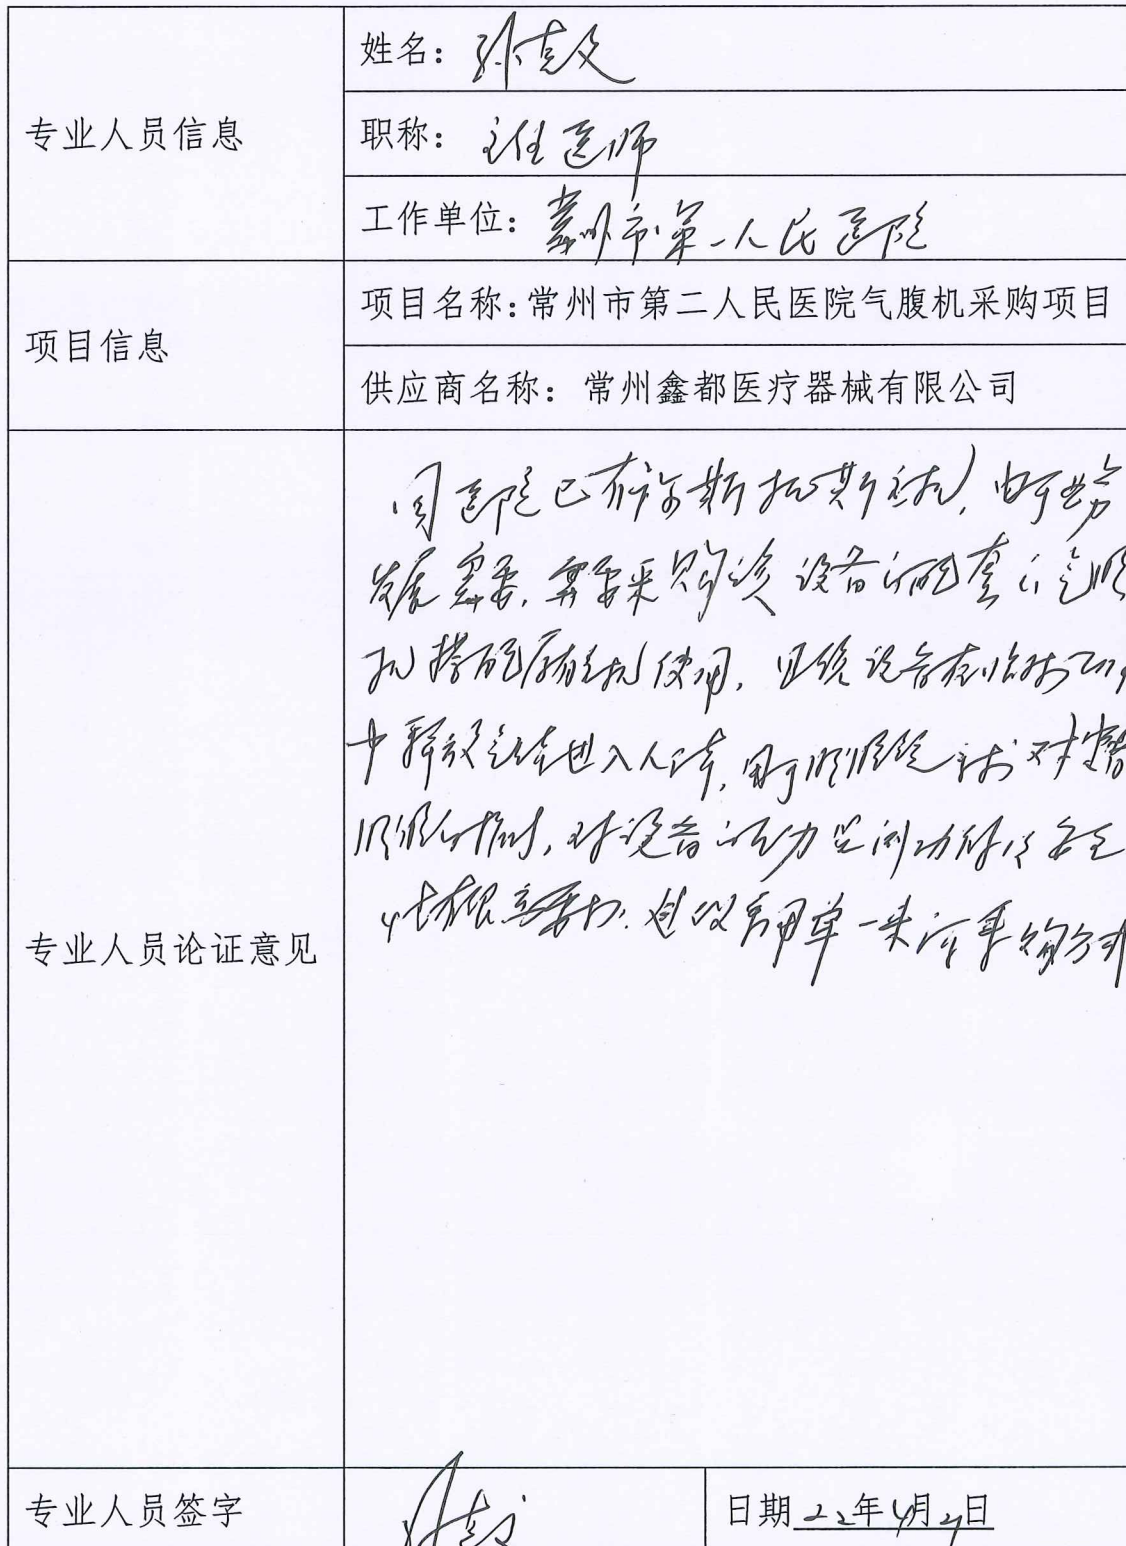 专业人员信息
姓名：孙克文
职称：主任医师
工作单位：常州市第一人民医院
项目信息
项目名称：常州市第二人民医院气腹机采购项目
供应商名称：常州鑫都医疗器械有限公司
专业人员论证意见
因医院已有卡尔斯托斯主机，由于业务
发展需要，需要采购该设备的配套的气腹
机搭配原有主机使用，因该设备在临床
中释放气体进入人体，用于腹腔镜手术对
对设备的压力监测功能及安全
性有很高要求，建议采用单一来源采购方式
专业人员签字
日期22年4月21日